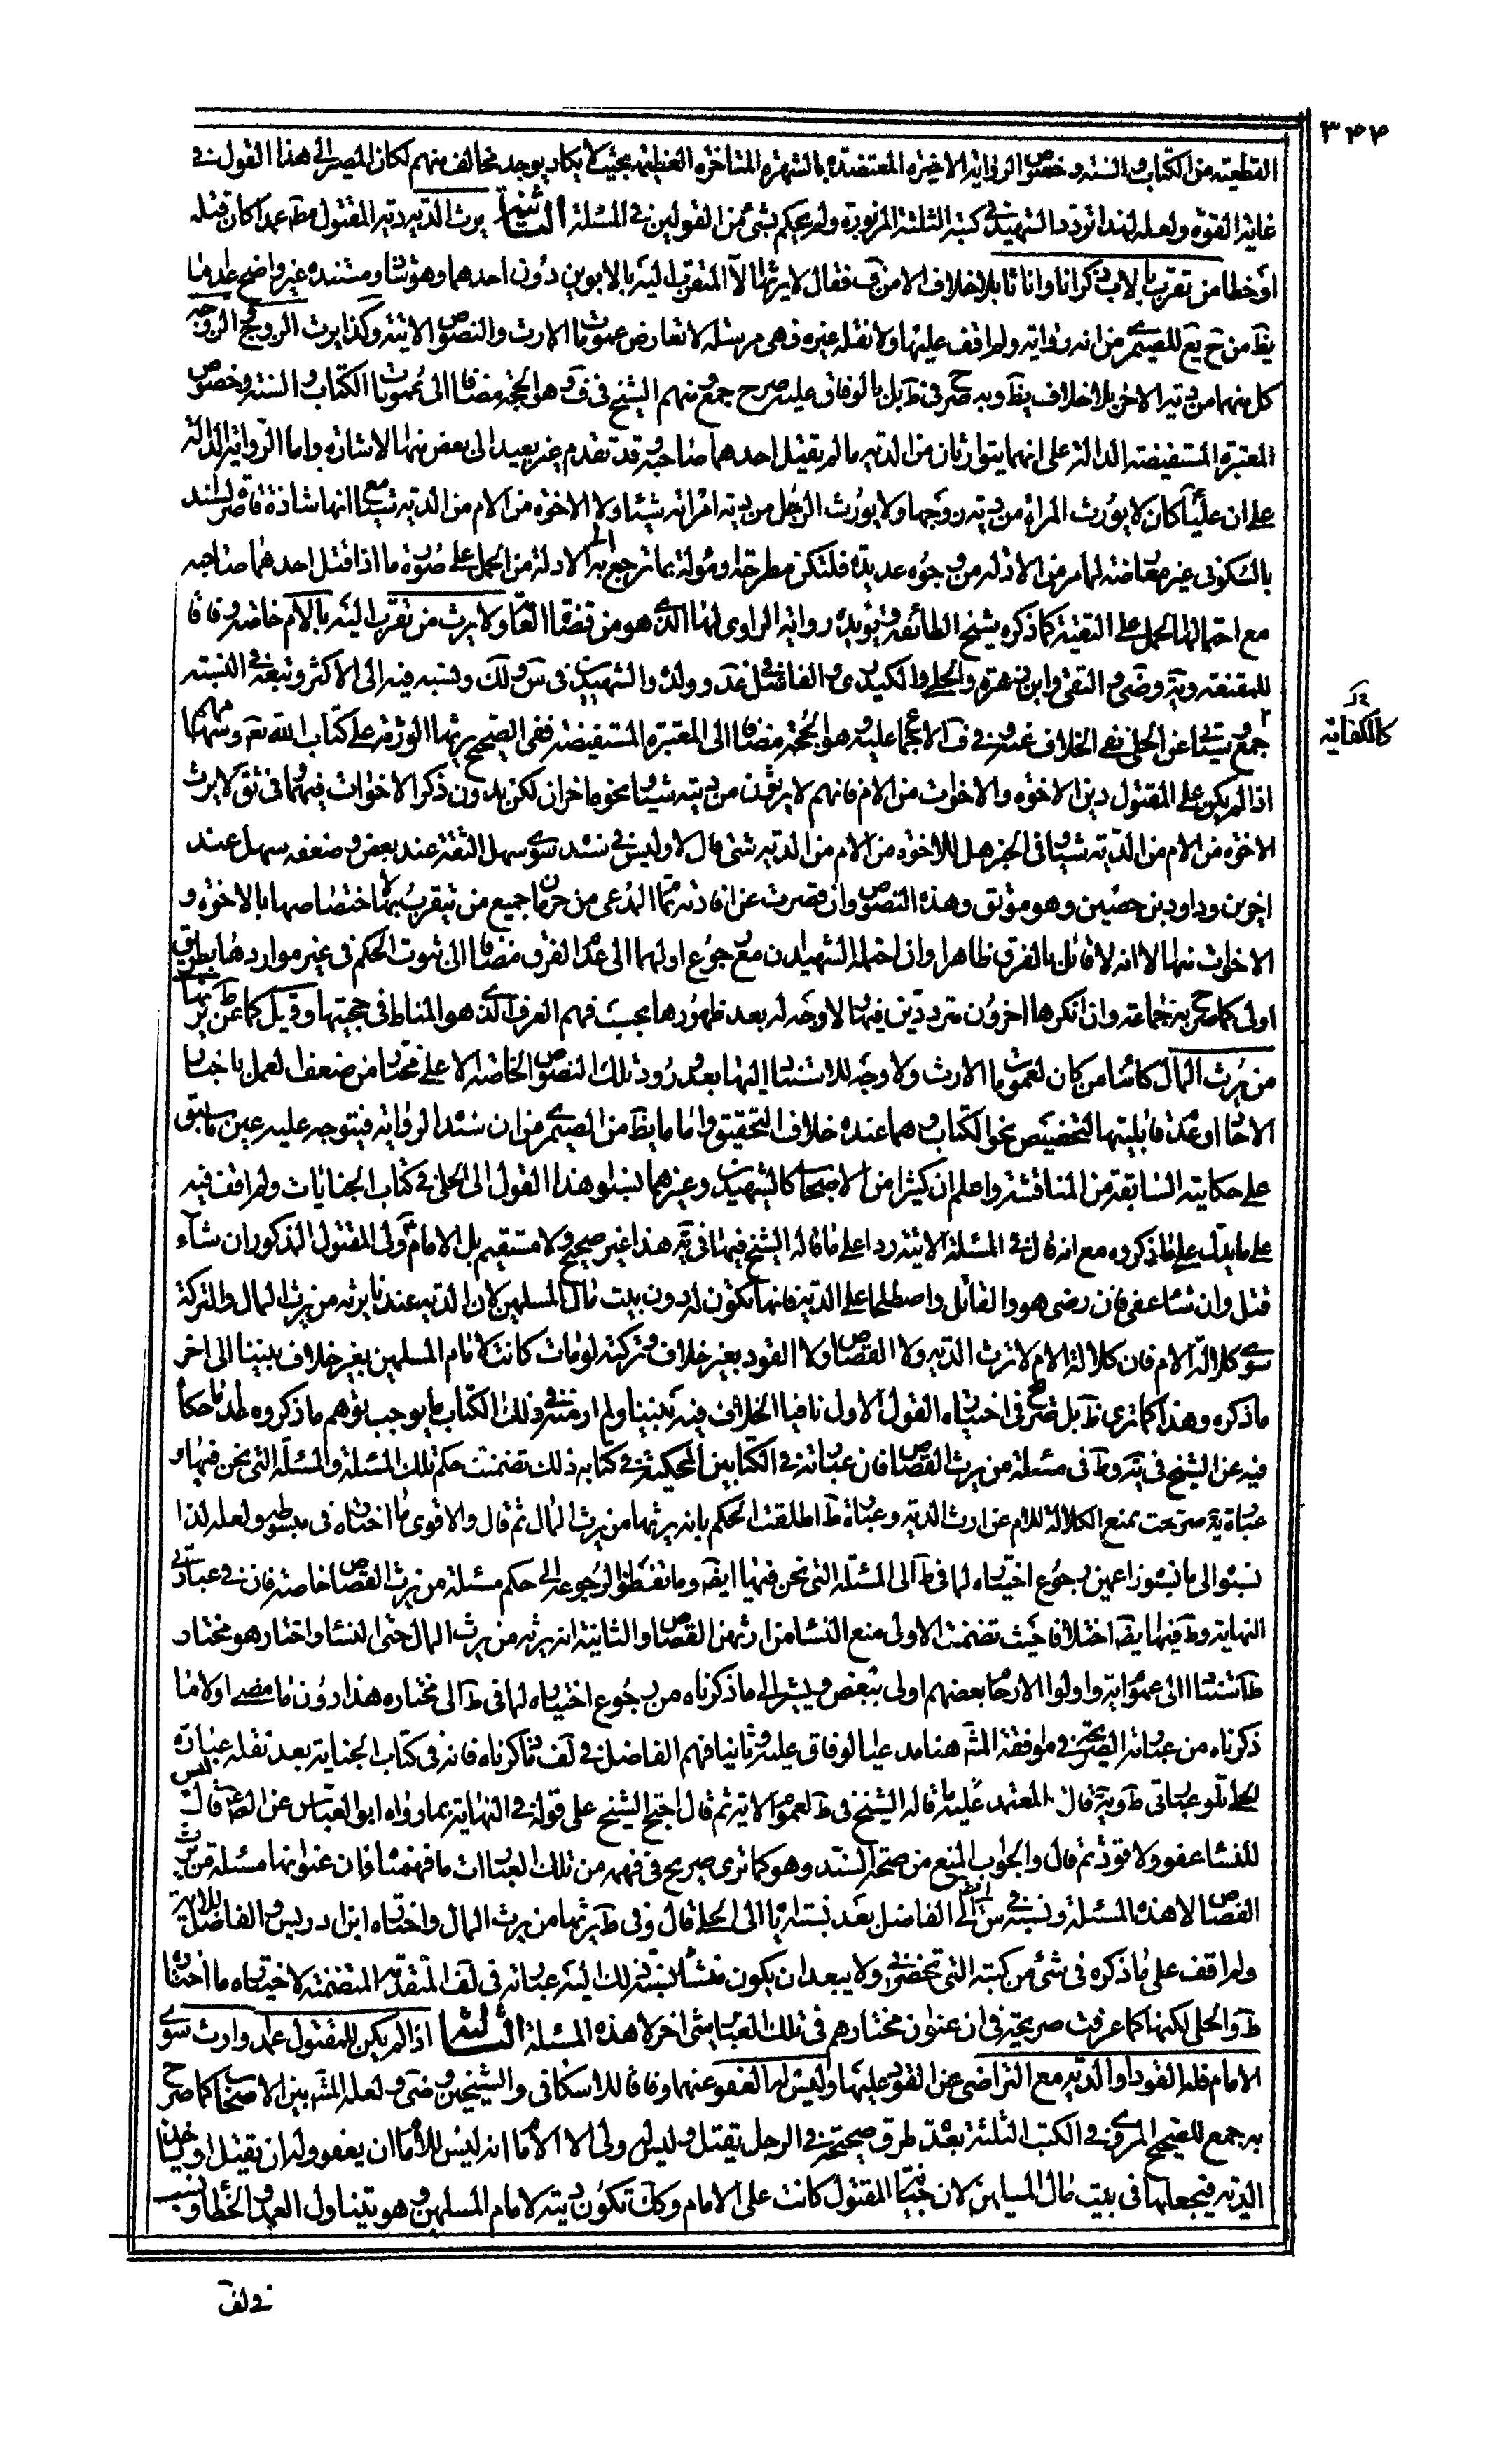 ٣٤٤
القطعية من الكتاب و السنة و خصوص الرواية الاخيرة المعتضدة بالشهرة المتاخرة العظيمة بحيث لا يكاد يوجد مخالف منهم لكان المصير الى هذا القول في
غاية القوة و لعله لهذا تردد الشهيد في كتبه الثلثة المزبورة و لم يحكم بشئ من القولين في المسئلة الثانية يرث الدية دية المقتول مط عمدا كان قتله
او خطا من تقرب بالاب ذكرانا و اناثا بلا خلاف الا من ف فقال لا يرثها الا المتقرب اليه بالابوين دون احدهما و هو شاذ و مستنده غير واضح عدا ما
يظ من ح يع للصيمري من انه رواية و لم اقف عليها و لا نقله غيره فهى مرسلة لا تعارض عمومات الارث و النصوص الاتية و كذا يرث الزوج و الزوجة
كل منهما من دية الاخر بلا خلاف يظ و به صرح في ط بل بالوفاق عليه صرح جمع و منهم الشيخ في ف و هو الحجة مضافا الى عمومات الكتاب و السنة و خصوص
المعتبرة المستفيضة الدالة على انهما يتوارثان من الدية ما لم يقتل احدهما صاحبه و قد تقدم غير بعيد الى بعض منها الاشارة و اما الرواية الدالة
على ان عليا كان لا يورث المراة من دية زوجها و لا يورث الرجل من دية امراته شيئا و لا الاخوة من الام من الدية شيئا مع انها شاذة قاصرة السند
بالسكوني غير معارضة لما مر من الادلة من وجوه عديدة فلتكن مطرحة او مؤلة بما ترجع به الى الادلة من الحمل على صورة ما اذا قتل احدهما صاحبه
مع احتمالها الحمل على التقية كما ذكره شيخ الطائفة و يؤيده رواية الراوى لها الذى هو من قضاة العامة و لا يرث من تقرب اليه بالام خاصة وفاقا
للمقنعة و ية و ضى و التقى و ابن زهرة و الحلى و الكيدرى و الفاضل في عد و ولده و الشهيدين في س و لك و نسبه فيه الى الاكثر و تبعه في النسبة
جمع كالكفاية و ياتى عن الحلى نفى الخلاف عنه و في ف الاجماع عليه و هو الحجة مضافا الى المعتبرة المستفيضة ففى الصحيح يرثها الورثة على كتاب الله تع و سهامهم
اذا لم يكن على المقتول دين الا الاخوة و الاخوات من الام فانهم لا يرثون من دية شيئا و نحوه اخران لكن بدون ذكر الاخوات فيهما و في ثق لا يرث
الاخوة من الام من الدية شيئا و في الخبر هل للاخوة من الام من الدية شئ قال لا و ليس في سنده سوى سهل الثقة عند بعض و ضعفه سهل عند
اخرين و داود بن حصين و هو موثق و هذه النصوص و ان قصرت عن افادة تمام المدعى من حرمان جميع من يتقرب بها لاختصاصها بالاخوة و
الاخوات منها الا انه لا قائل بالفرق ظاهرا و ان احتمله الشهيدان مع رجوع اولهما الى عدم الفرق مضافا الى ثبوت الحكم في غير مواردها بطريق
اولى كما صرح به جماعة و ان انكرها اخرون مترددين فيها لا وجه له بعد ظهورها بحسب فهم العرف الذى هو المناط في حجيتها و قيل كما عن ط يرثها
من يرث المال كائنا من كان لعمومات الارث و لا وجه للاستناد اليها بعد ورود تلك النصوص الخاصة الا على مختار من ضعف العمل باخبار
الاحاد او عدم قابليتها لتخصيص نحو الكتاب و هما عنده خلاف التحقيق و اما ما يظ من الصيمرى من ان سند الرواية فيتوجه عليه عين ما سبق
على حكايته السابقة من المناقشة و اعلم ان كثيرا من الاصحاب كالشهيدين و غيرهما نسبوا هذا القول الى الحلى في كتاب الجنايات و لم اقف فيه
على ما يدل على ما ذكروه مع انه قال في المسئلة الاتية ردا على ما قاله الشيخ فيها في ية هذا غير صحيح و لا مستقيم بل الامام ولى المقتول المذكور ان شاء
قتل و ان شاء عفى فان رضى هو و القاتل و اصطلحا على الدية فانها تكون له دون بيت مال المسلمين لان الدية عندنا يرثها من يرث المال و التركة
سوى كلالة الام فان كلالة الام لا ترث الدية و لا القصاص و لا القود بغير خلاف و تركته لو مات كانت لامام المسلمين بغير خلاف بيننا الى اخر
ما ذكره و هذا كما ترى ظ بل صرح في اختياره القول الاول نافيا الخلاف فيه بيننا و لم ار منه في ذلك الكتاب ما يوجب توهم ما ذكروه عدا ما حكاه
فيه عن الشيخ في ية و ط في مسئلة من يرث القصاص فان عبارته في الكتابين المحكية في كتابه ذلك تضمنت حكم تلك المسئلة و المسئلة التى نحن فيها و
عبارة ية صرحت بمنع الكلالة للام عن ارث الدية و عبارة ط اطلقت الحكم بانه يرثها من يرث المال ثم قال و الاقوى ما اختاره في مبسوطه و لعله لذا
نسبوا الى ما نسبوا زاعمين رجوع اختياره لما في ط الى المسئلة التى نحن فيها ايضه و ما تفطنوا لرجوعه الى حكم مسئلة من يرث القصاص خاصة فان في عبارتى
النهاية و ط فيها ايضه اختلافا حيث تضمنت الاولى منع النساء من ارثهن القصاص و الثانية انه يرثه من يرث المال حتى النساء و اختار هو مختار
ط استنادا الى عموم اية و اولوا الارحام بعضهم اولى ببعض و يشير الى ما ذكرناه من رجوع اختياره لما في ط الى مختاره هذا دون ما مضى اولا ما
ذكرناه من عبارته الصريحة في موافقة المشه هنا مدعيا الوفاق عليه و ثانيا فهم الفاضل في لف ما ذكرناه فانه في كتاب الجناية بعد نقله عبارة
الحلى تلو عبارتى ط و ية قال المعتمد عليه ما قاله الشيخ في ط لعموم الاية ثم قال احتج الشيخ على قوله في النهاية بما رواه ابو العباس عن الصادق قال ليس
للنساء عفو و لا قود ثم قال و الجواب المنع من صحة السند و هو كما ترى صريح في فهمه من تلك العبارات ما فهمنا و ان عنوانها مسئلة من يرث
القصاص لا هذه المسئلة و نسبه في س الى الفاضل ايضا بعد نسبته اياه الى الحلى قال و في ط يرثها من يرث المال و اختاره ابن ادريس و الفاضل
و لم اقف على ما ذكره في شئ من كتبه التى تحضرنى و لا يبعد ان يكون منشا نسبته ذلك اليه عبارته في لف المتقدمة المتضمنة لاختياره ما اختاره
ط و الحلى لكنها كما عرفت صريحة في ان عنوان مختارهم في تلك العبارة شئ اخر لا هذه المسئلة الثالثة اذا لم يكن للمقتول عمدا وارث سوى
الامام فله القود او الدية مع التراضى عن القود عليها و ليس له العفو عنهما وفاقا للاسكافى و الشيخين و ضى و لعله المشه بين الاصحاب كما صرح
به جمع للصحيح المروى في الكتب الثلثة بعدة طرق صحيحة في الرجل يقتل و ليس له ولى الا الامام انه ليس للامام ان يعفو و له ان يقتل او ياخذ
الدية فيجعلها في بيت مال المسلمين لان جناية المقتول كانت على الامام و كك تكون ديته لامام المسلمين و هو يتناول العمد و الخطا و نسب
في لف